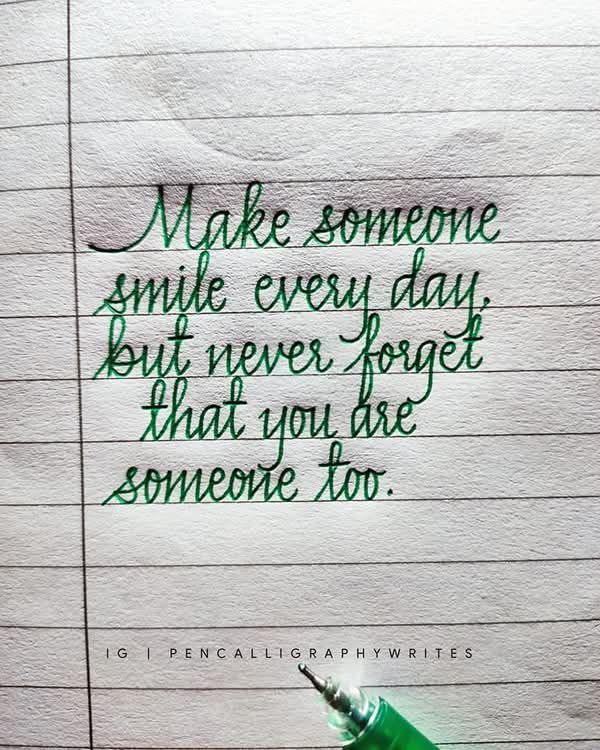 Make someone
smile every day,
but never forget
that you are
someone too.
IG | PENCALLIGRAPHYWRITES